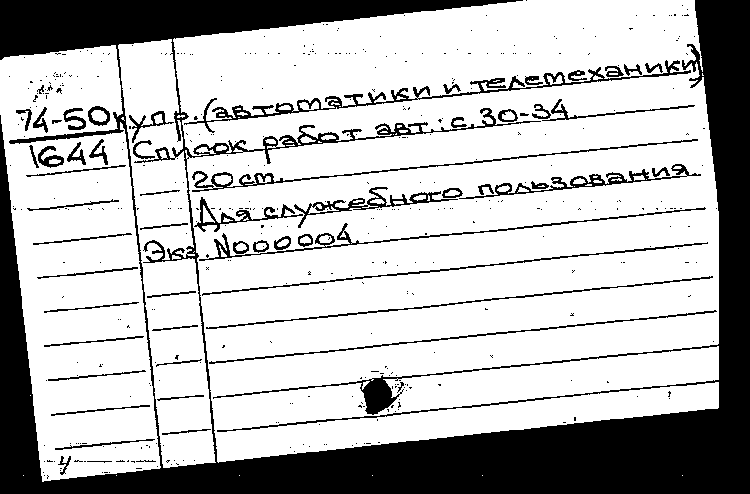 74-50 купр. (автоматики и телемеханики)
1644 Список работ авт.: с. 30-34.
20 ст.
Для служебного пользования
Экз. N000004.
4